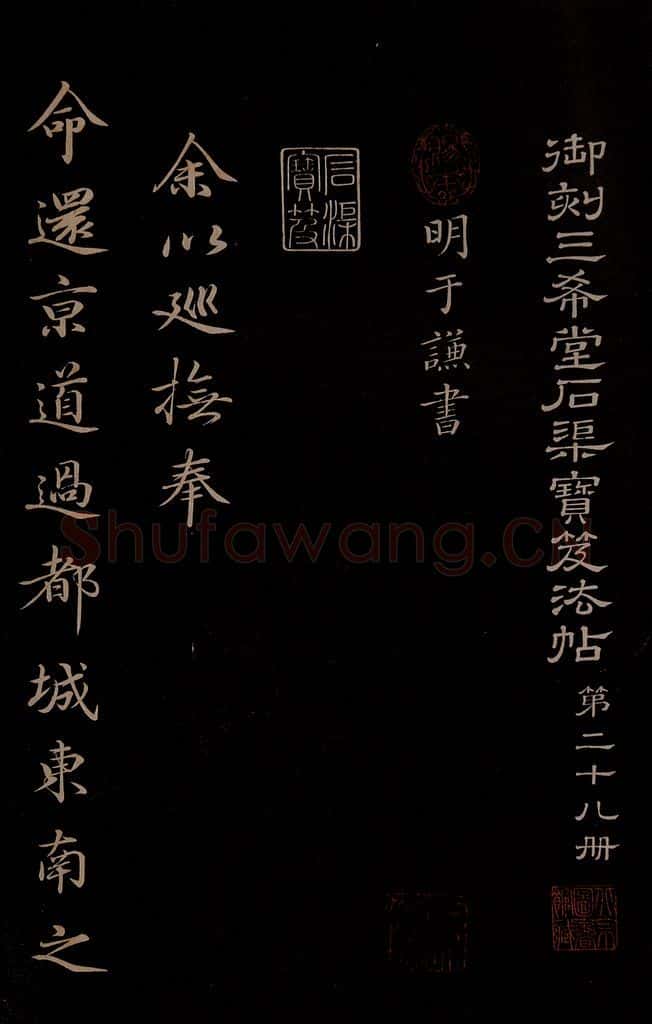 御刻三希堂石渠寶笈法帖 第二十八册
明于謙書
石渠寶笈
余以廵撫奉
命還京道過都城東南之
Shufawang.CN